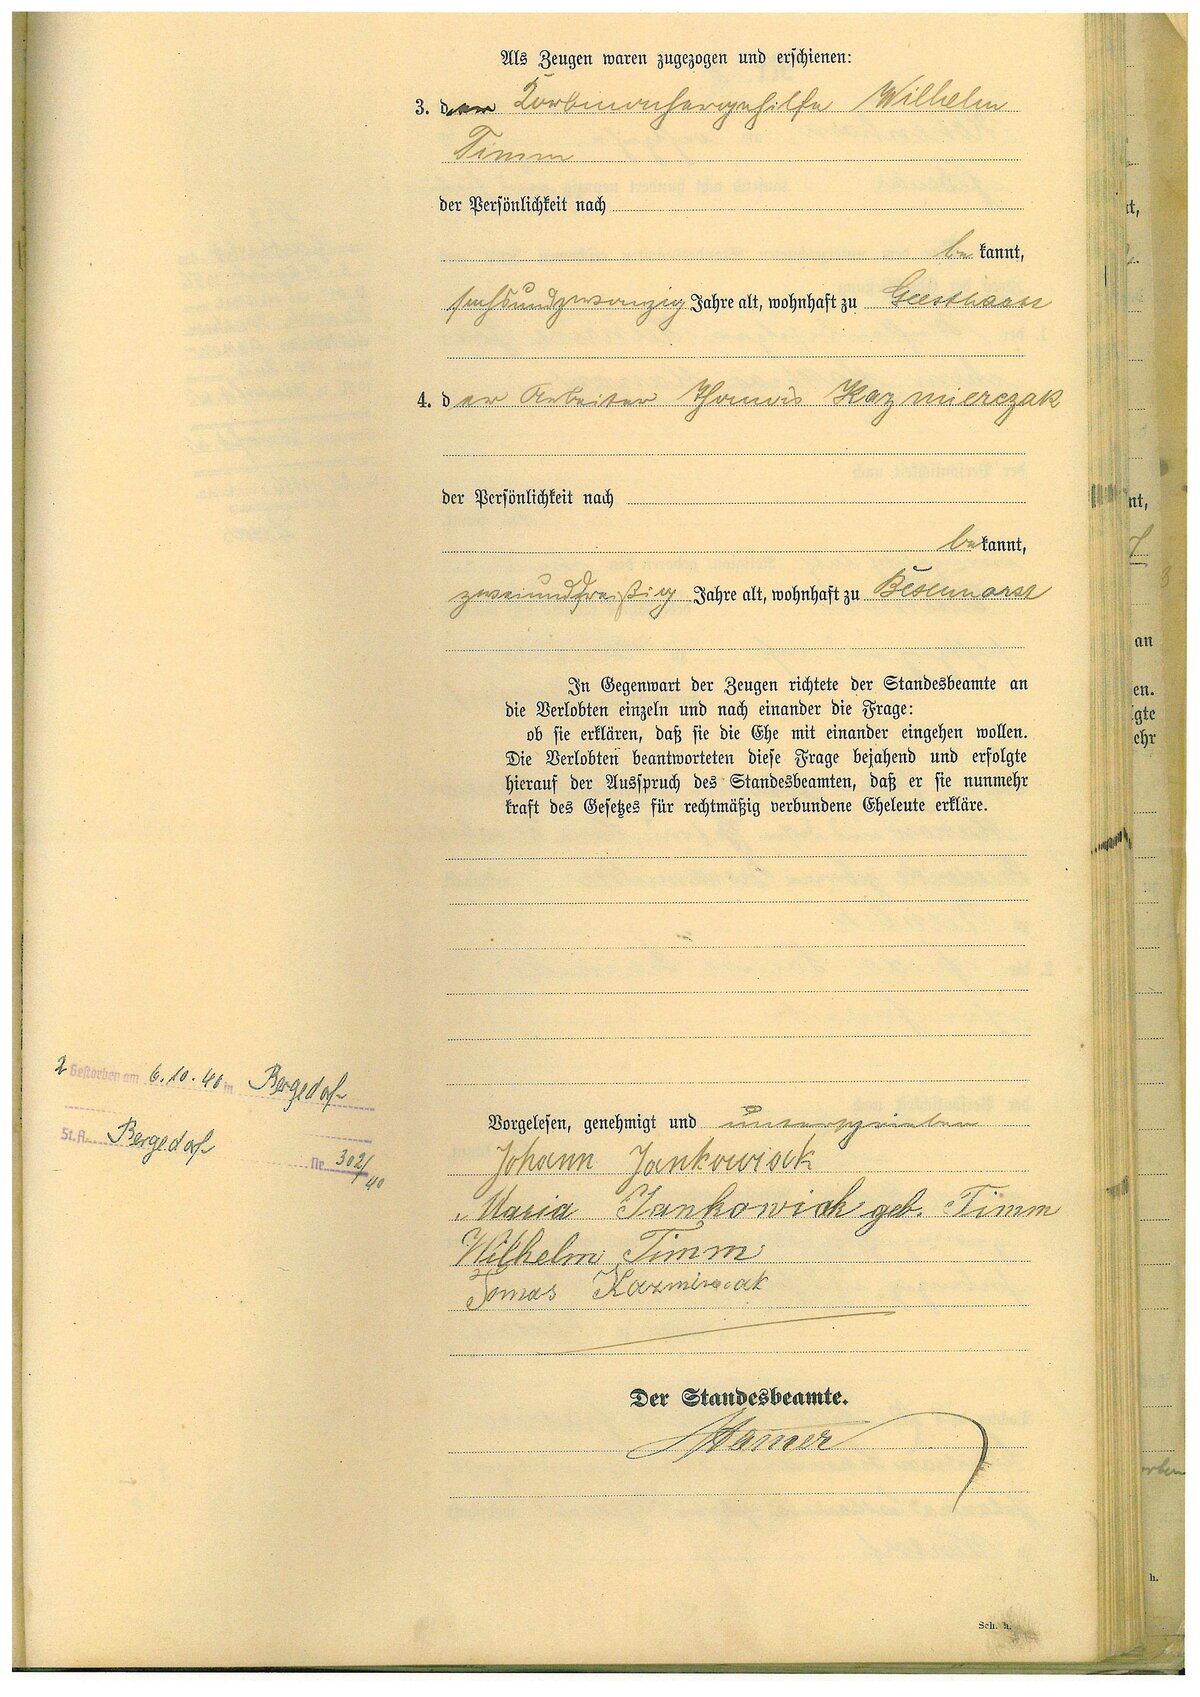 Als Zeugen waren zugezogen und erschienen:
3. der Korbmachergehilfe Wilhelm
Timm
der Persönlichkeit nach
bekannt,
sechsundzwanzig Jahre alt, wohnhaft zu Geesthacht
4. der Arbeiter Thomas Kazmierczak
der Persönlichkeit nach
bekannt,
zweiunddreißig Jahre alt, wohnhaft zu Besenhorst
In Gegenwart der Zeugen richtete der Standesbeamte an
die Verlobten einzeln und nach einander die Frage:
ob sie erklären, daß sie die Ehe mit einander eingehen wollen.
Die Verlobten beantworteten diese Frage bejahend und erfolgte
hierauf der Ausspruch des Standesbeamten, daß er sie nunmehr
kraft des Gesetzes für rechtmäßig verbundene Eheleute erkläre.
2 Gestorben am 6.10.40 in Bergedorf
St. A. Bergedorf
Nr. 302/40
Vorgelesen, genehmigt und unterschrieben
Johann Jankowiak
Maria Jankowiak geb. Timm
Wilhelm Timm
Tomas
Der Standesbeamte.
Sch. h.